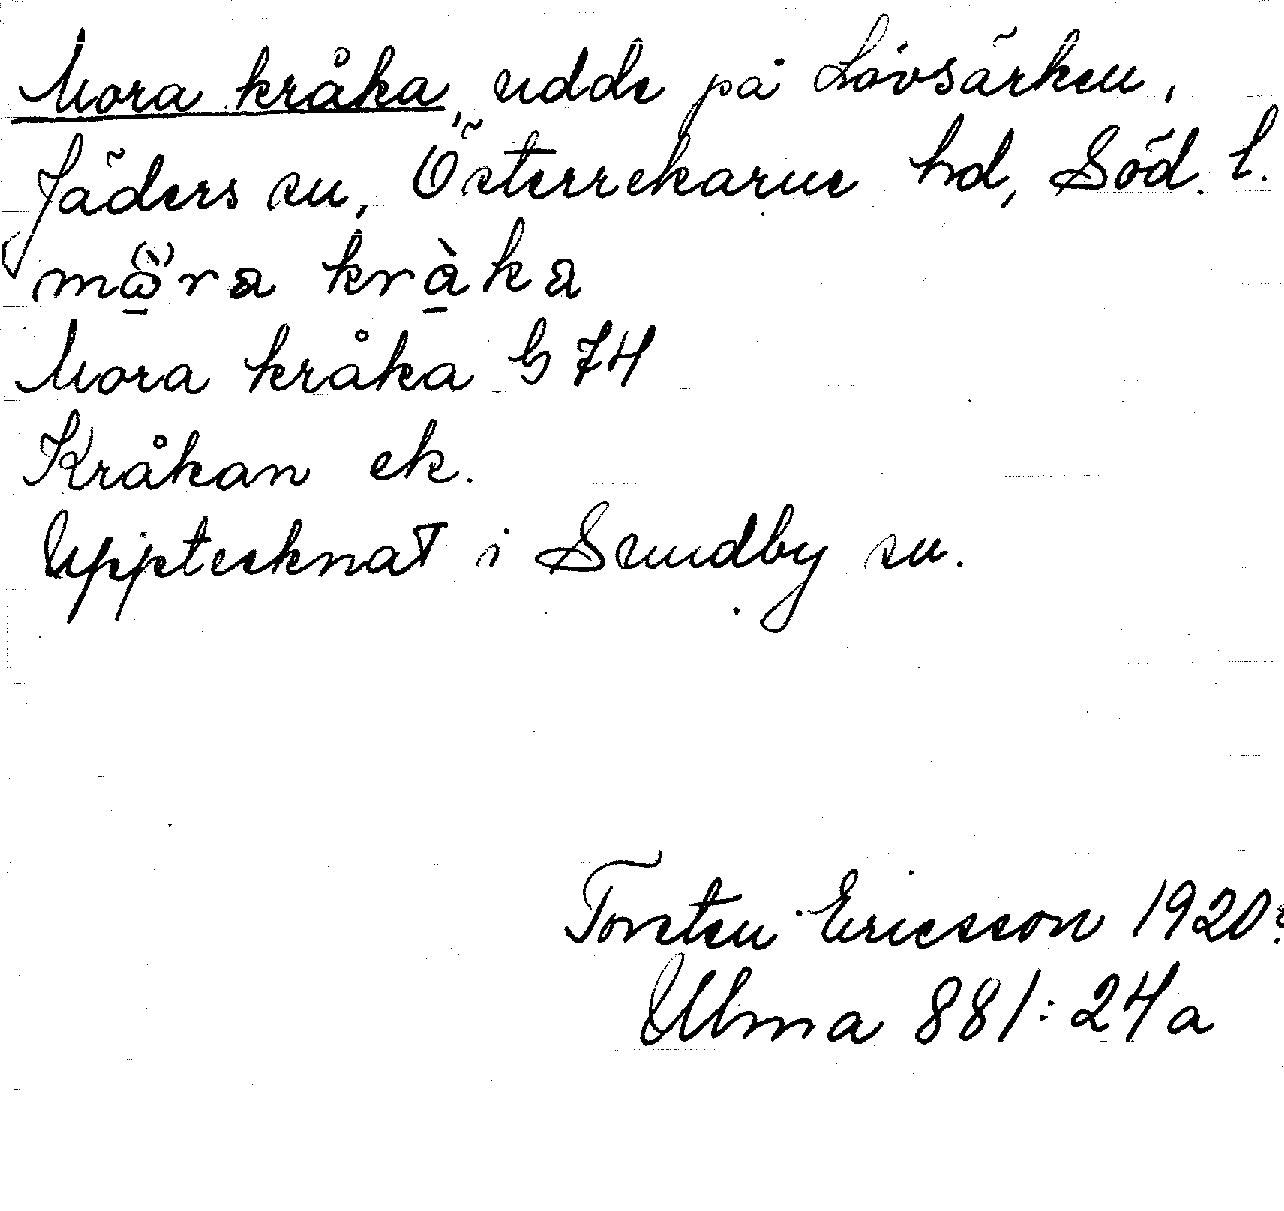 Mora kråka, udde på Lövsärken,
Jäders sn, Österrekarne hd, Söd. l.
kràka
Mora kråka G 74
Kråkan ek.
Upptecknat i Sundby sn.
Torsten Ericsson 1920
Ulma 881:24a